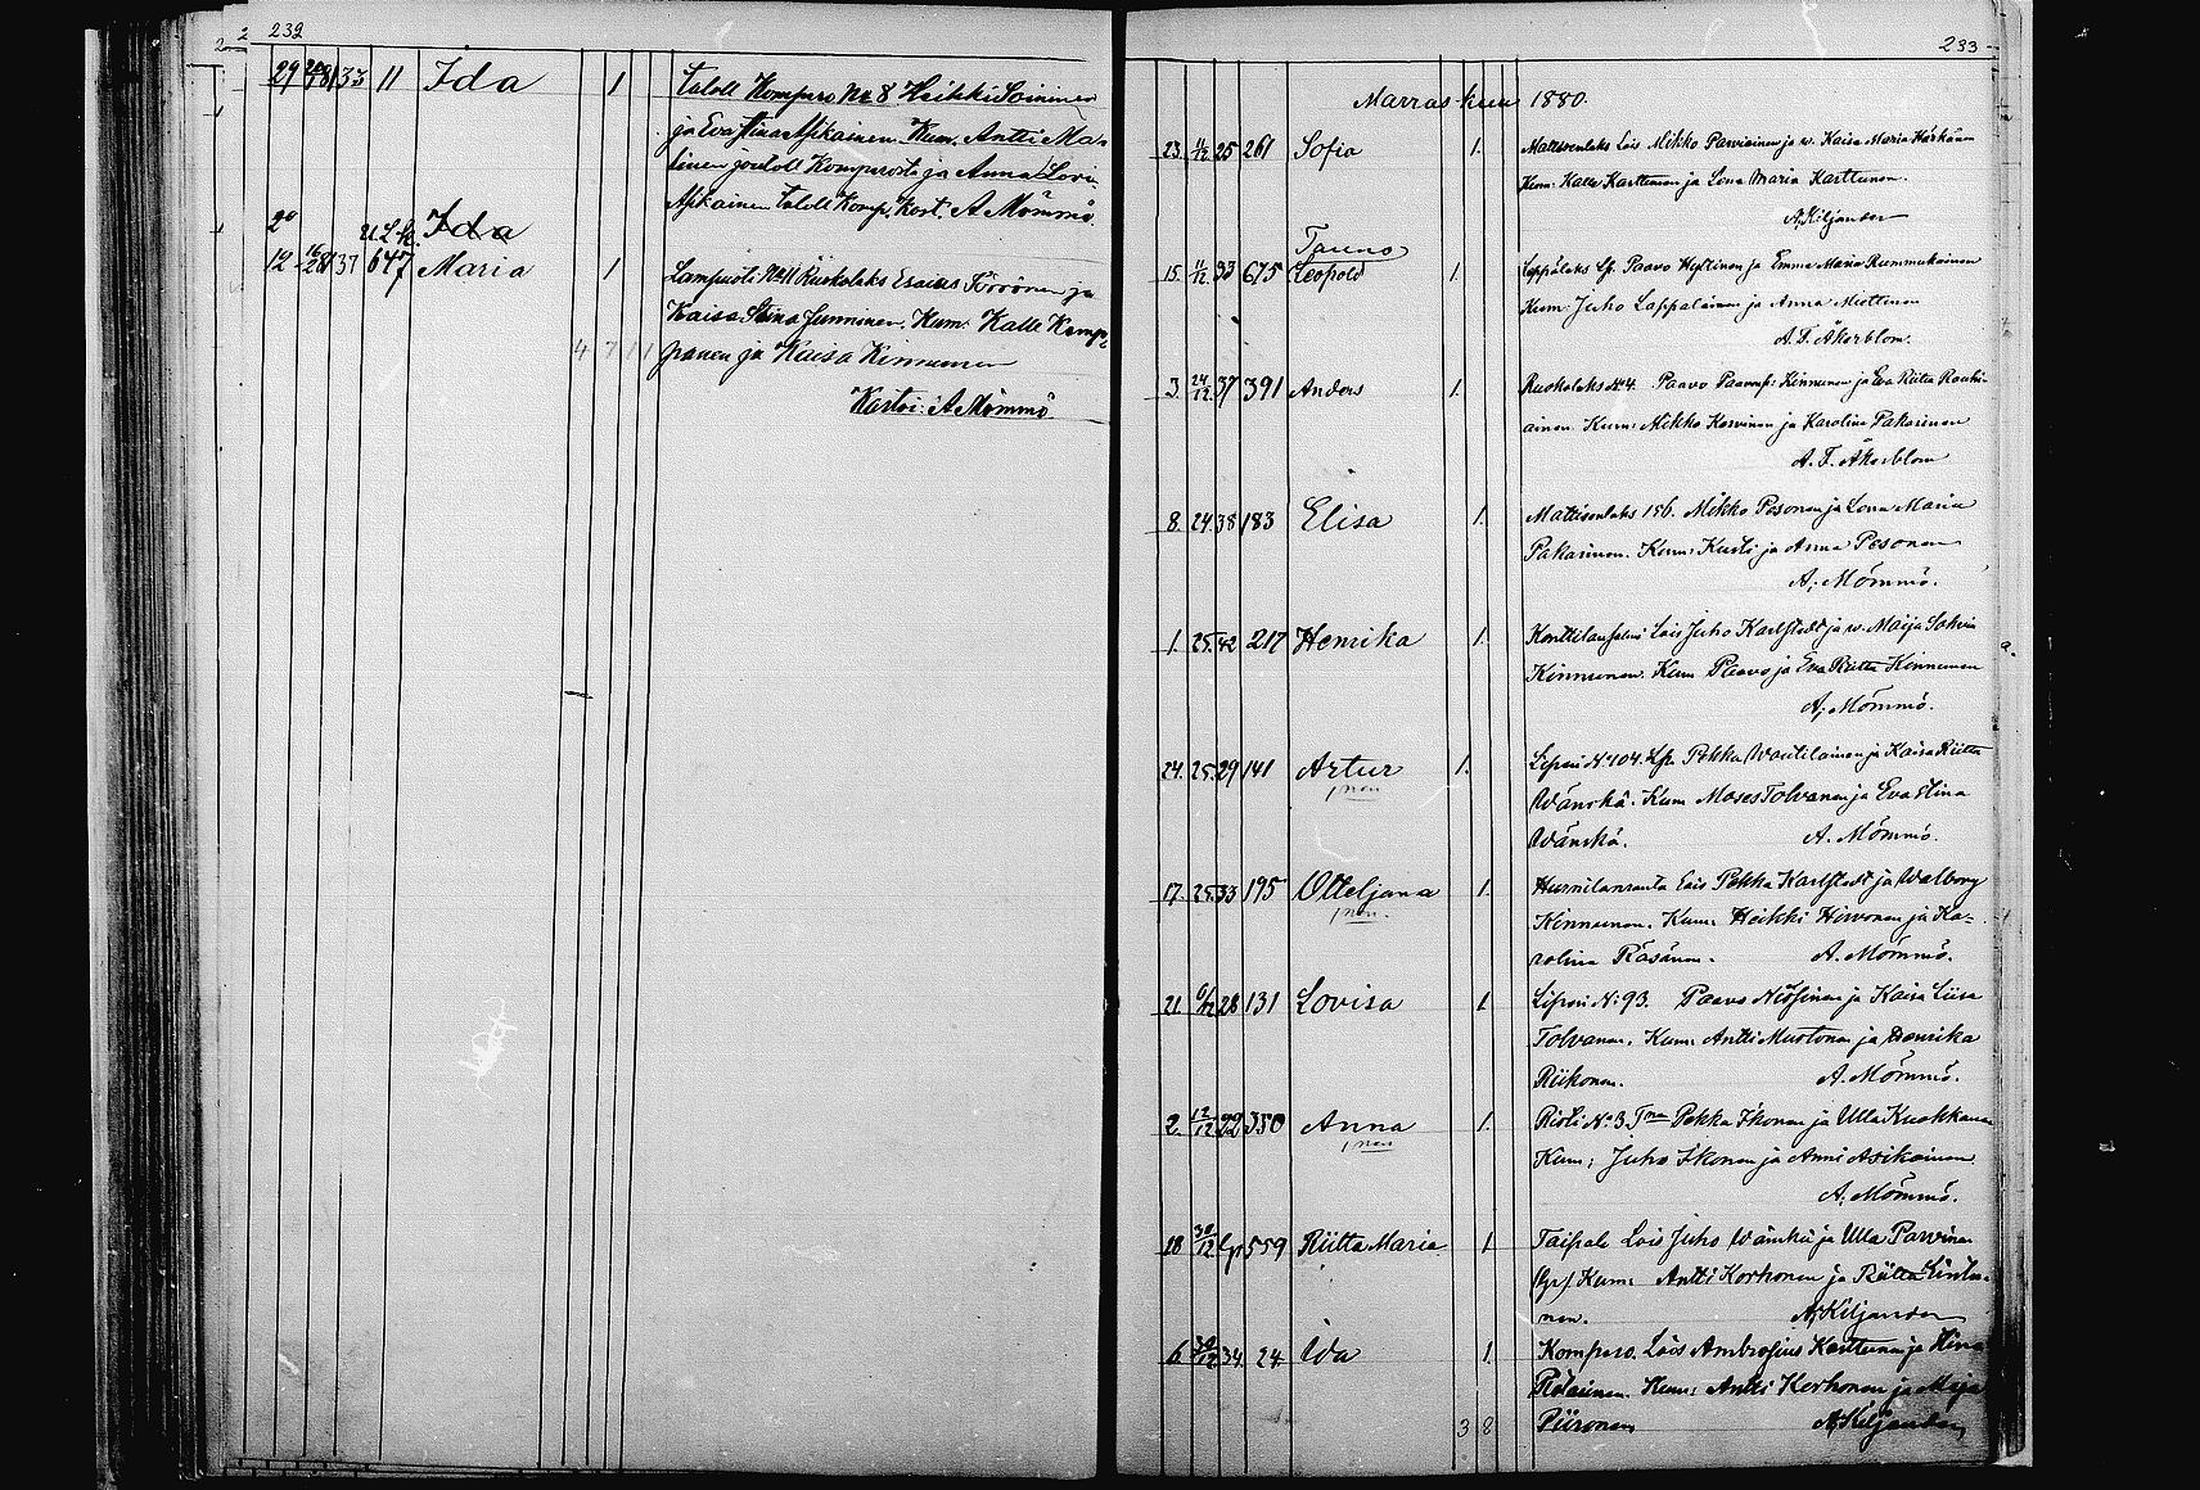 232
29 133 11 Ida 1 taloll Komperо No 8 Heikki Soininen
ja Eva Stina Asikainen. Kum. Antti Ma-
tinen joutoll Komperosta ja Anna Lovi.
Asikainen taloll Komp. Kast. A Mömmö.
20 Ida
12 16/28 137 647 Maria 1 Lampuoti No 11 Ruokolaks Esaias Törrönen ja
Kaisa Stina Junninen. Kum. Kalle Kemp-
4 7 11 panen ja Kaisa Kinnunen
Kastoi: A Mömmö
233
Marras-kuu 1880.
23. 11/12 25 261 Sofia 1. Mattisenlaks Lois Mikko Parviainen ja w. Kaisa Maria Härkönen
Kum. Kalle Karttunen ja Lena Maria Karttunen.
A. Kiljander
Tauno
15. 11/12 33 675 Leopold 1. Leppälaks Lp. Paavo Hyttinen ja Emma Maria Rummukainen
Kum. Juho Lappalainen ja Anna Miettinen
A. F. Åkerblom.
3. 24/12 37 391 Anders 1. Ruokolaks No 4. Paavo Paavonp: Kinnunen ja Eva Riitta Rauhi-
ainen. Kum: Mikko Korvinen ja Karolina Pakarinen
A. F. Åkerblom
8. 24. 38 183 Elisa 1. Mattisenlaks 156. Mikko Pesonen ja Lena Maria
Pakarinen. Kum: Kusti ja Anna Pesonen
A; Mömmö.
1. 25. 42 217 Henrika 1. Konttilansalmi Lois Juho Karlstedt ja w. Maija Sohvia
Kinnunen. Kum Paavo ja Eva Riitta Kinnunen
A; Mömmö.
24. 25. 29 141 Artur 1. Liperi No 104. Lp. Pekka Woutilainen ja Kaisa Riitta
Wänskä. Kum Moses Tolvanen ja Eva Stina
Wänskä. A. Mömmö.
17. 25. 33 195 Otteljana 1. Hursilanranta Lois Pekka Karlstedt ja Walborg
Kinnunen. Kum. Heikki Hirvonen ja Ka-
rolina Räsänen. A. Mömmö.
21. 6/12 28 131 Lovisa 1 Liperi No 93. Paavo Nissinen ja Kaisa Liisa
Tolvanen. Kum: Antti Mustonen ja Henrika
Riikonen. A. Mömmö.
2. 12/12 22 350 Anna 1. Risti No 3 Pekka Ikonen ja Ulla Kuokkanen
Kum; Juho Ikonen ja Anni Asikainen
A. Mömmö.
18 30/12 559 Riitta Maria 1 Taipale Lois Juho Wänskä ja Ulla Parvinen
Kum: Antti Korhonen ja Riitta
nen. A. Kiljander
6 30/12 34 24 Ida 1. Kompero. Lois Ambrosius Karttunen ja Stina
Kum: Antti Korhonen ja Maja
3 8 Piironen A. Kiljander